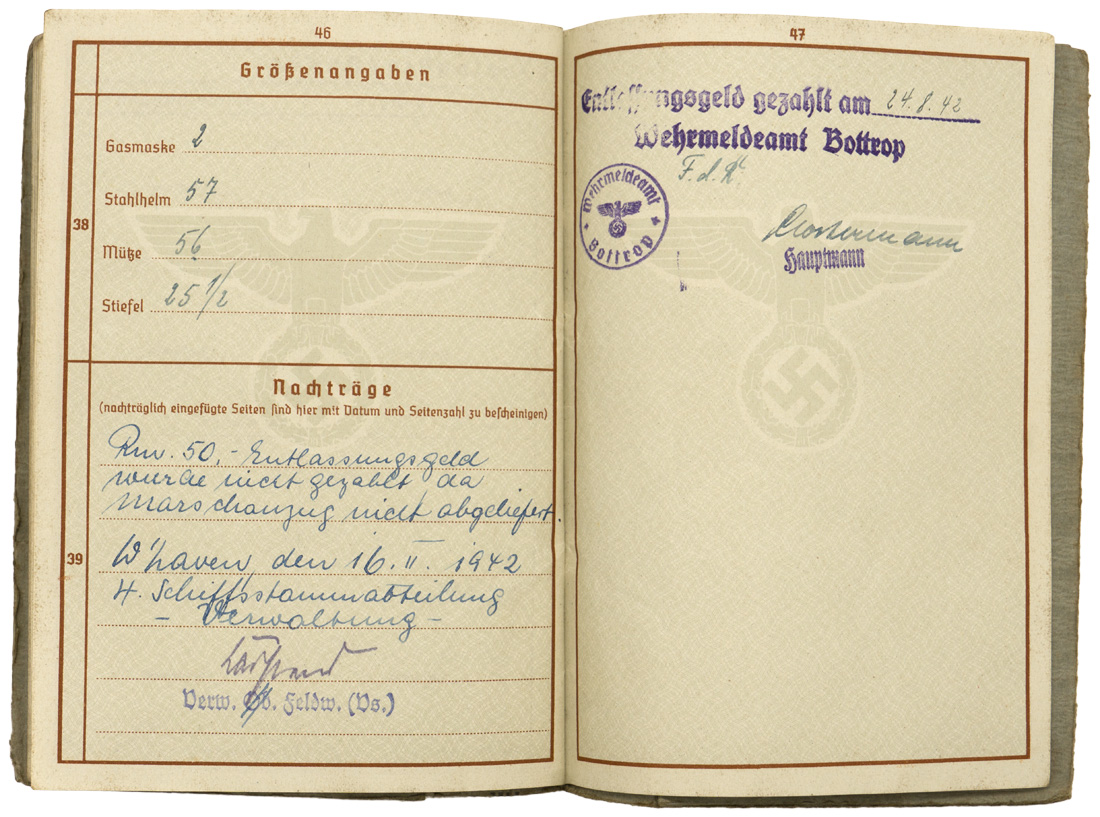 46
Größenangaben
38
Gasmaske 2
Stahlhelm 57
Mütze 56
Stiefel 25 1/2
Nachträge
(nachträglich eingefügte Seiten sind hier mit Datum und Seitenzahl zu bescheinigen)
39
Rm. 50,- Entlassungsgeld
wurde nicht gezahlt da
Marschanzug nicht abgeliefert.
W'haven den 16. II. 1942
4. Schiffsstammabteilung
- Verwaltung -
Verw. Feldw. (Vs.)
47
Entlassungsgeld gezahlt am 24.8.42
Wehrmeldeamt Bottrop
F.d.R.
Wehrmeldeamt
Bottrop
Hauptmann